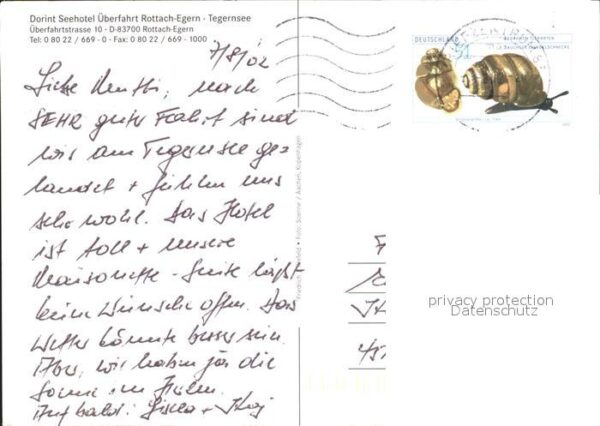 Dorint Seehotel Überfahrt Rottach-Egern · Tegernsee
Überfahrtstrasse 10 · D-83700 Rottach-Egern
Tel: 0 80 22 / 669 - 0 · Fax: 0 80 22 / 669 - 1000
7/8/02
Liebe, nach
SEHR guter Fahrt sind
wir am Tegernsee ge-
landet + fühlen uns
sehr wohl. Das Hotel
ist toll + unsere
Maisonette-Suite läßt
keine Wünsche offen. Das
Wetter könnte besser sein.
Aber, wir haben ja die
Sonne im Herzen.
Auf bald!
DEUTSCHLAND
BAUCHIGE WINDELSCHNECKE
privacy protection
Datenschutz